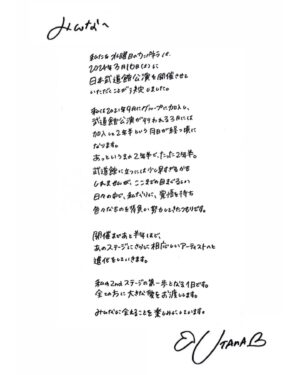 みんなへ
私たち水曜日のカンパネラは、
2024年3月16日(土)に
日本武道館公演を開催させて
いただくことが決定しました。
私は2021年9月にグループに加入し、
武道館公演が行われる3月には
加入して2年半という月日が経つ頃に
なります。
あっというまの2年半で、たった2年半。
武道館に立つには少し早すぎるかも
しれませんが、ここまでの目まぐるしい
日々の中で、私なりに、覚悟を持ち
色々なものを背負い努力してきたつもりです。
開催まであと半年ほど、
あのステージにさらに相応しいアーティストへと
進化をしていきます。
私の2ndステージの第一歩となる1日です。
全ての方に大きな愛をお渡しします。
みんなに会えることを楽しみにしています。
UTAHA